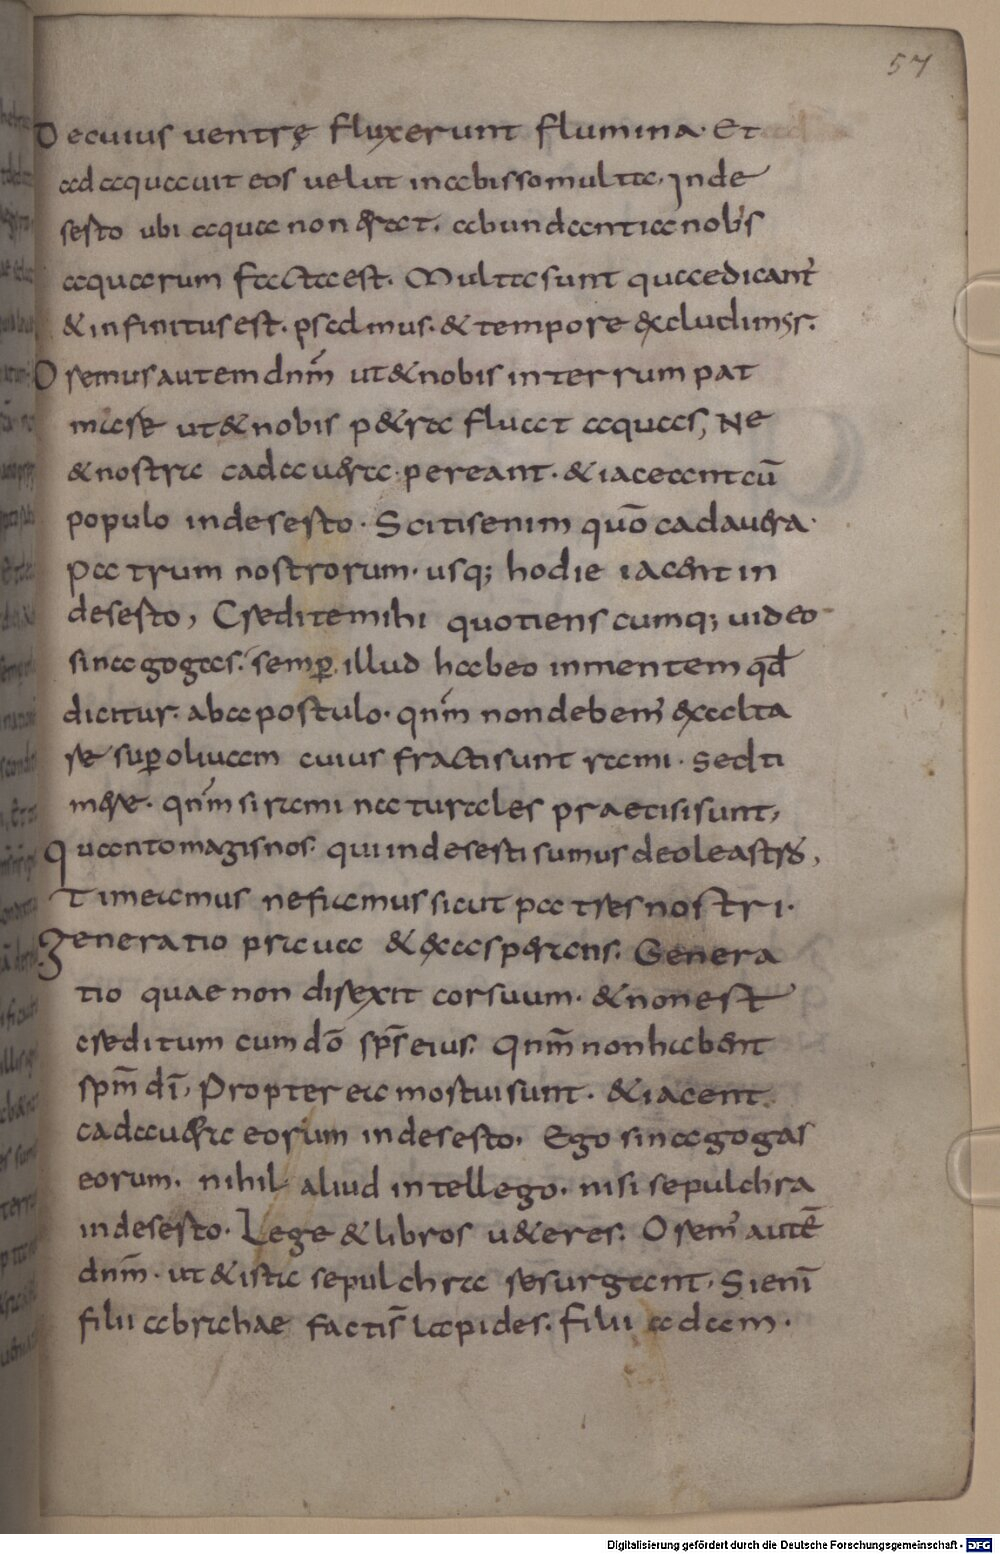 57
De cuius ventrę fluxerunt flumina. Et
adaquauit eos uelut in abisso multa. In de
serto ubi aqua non erat. abundantia nobis
aquarum facta est. Multa sunt quae dicant᷑
& infinitus est. psalmus. & tempore excludimur.
Oremus autem dnm̄ ut & nobis interrum pat
miserẽ ut & nobis p&ra fluat aquas, Ne
& nostra cadauera pereant. & iaceant cū
populo in deserto. Scitis enim quō cadauera
patrum nostrorum. usq; hodie iacent in
deserto, Credite mihi quotienscumq; uideo
sinagogas. semp̲ illud habeo in mentem qd̄
dicitur. ab apostulo. qnm̄ non debem᷑ exalta
re sup̲ oliuam cuius fracti sunt rami. Sed ti
mere. qnm̄ si rami naturales praecisi sunt,
Quanto magis nos. qui in deserti sumus de oleastro,
Timeamus ne fiamus sicut patres nostri.
Generatio praua & exasperans. Genera
tio quae non direxit cor suum. & non est
creditum cum dō sps̄ eius. Qnm̄ non habent
spm̄ dī, Propterea mortui sunt. & iacent
cadauera eorum in deserto. Ego sinagogas
eorum. nihil aliud intellego. nisi sepulchra
in deserto. Lege & libros u&eres. Orem᷑ autē
dnm̄. ut & ista sepulchra resurgant. Si enī
filii abrahae factis̄ lapides. filii adam.
Digitalisierung gefördert durch die Deutsche Forschungsgemeinschaft - DFG